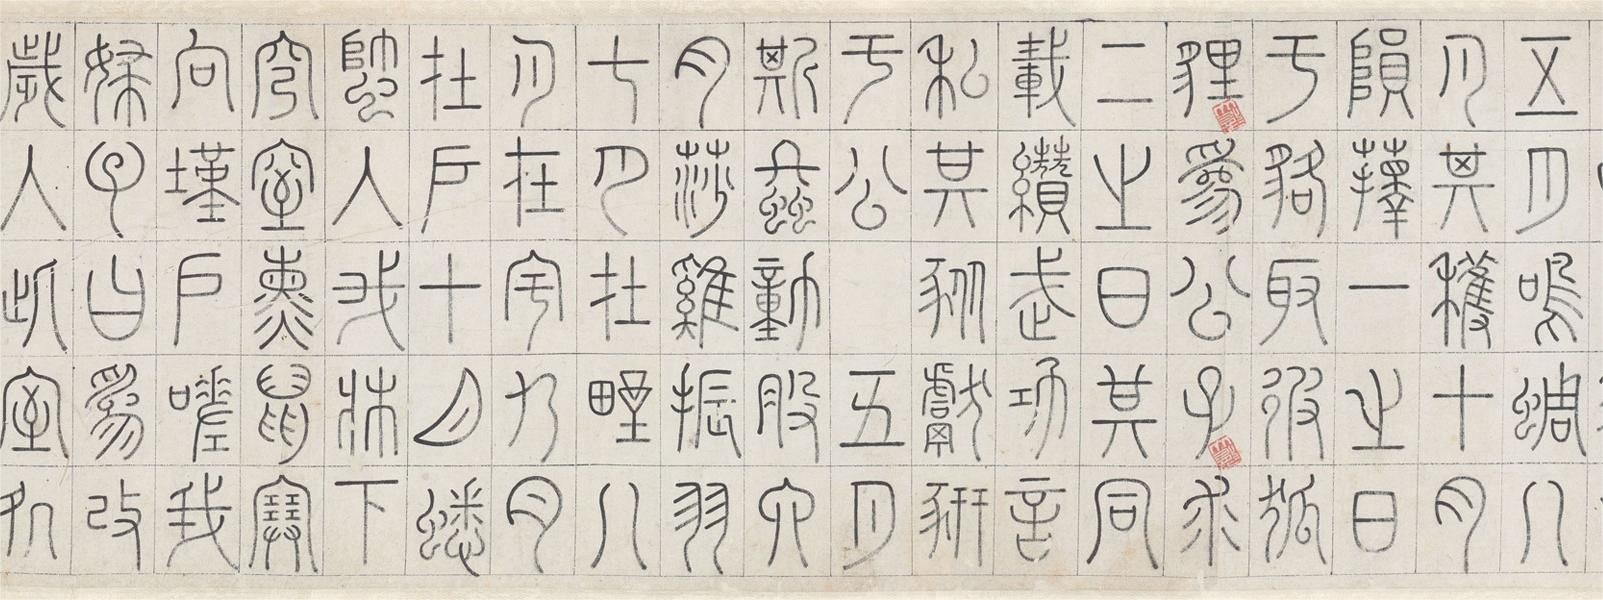 五月鳴蜩八
月其穫十月
隕蘀一之日
于貉取彼狐
狸為公子裘
二之日其同
載纘武功言
私其豵獻豜
于公 五月
斯螽動股六
月莎雞振羽
七月在野八
月在宇九月
在戶十月蟋
蟀入我牀下
穹窒熏鼠塞
向墐戶嗟我
婦子曰為改
歲入此室處